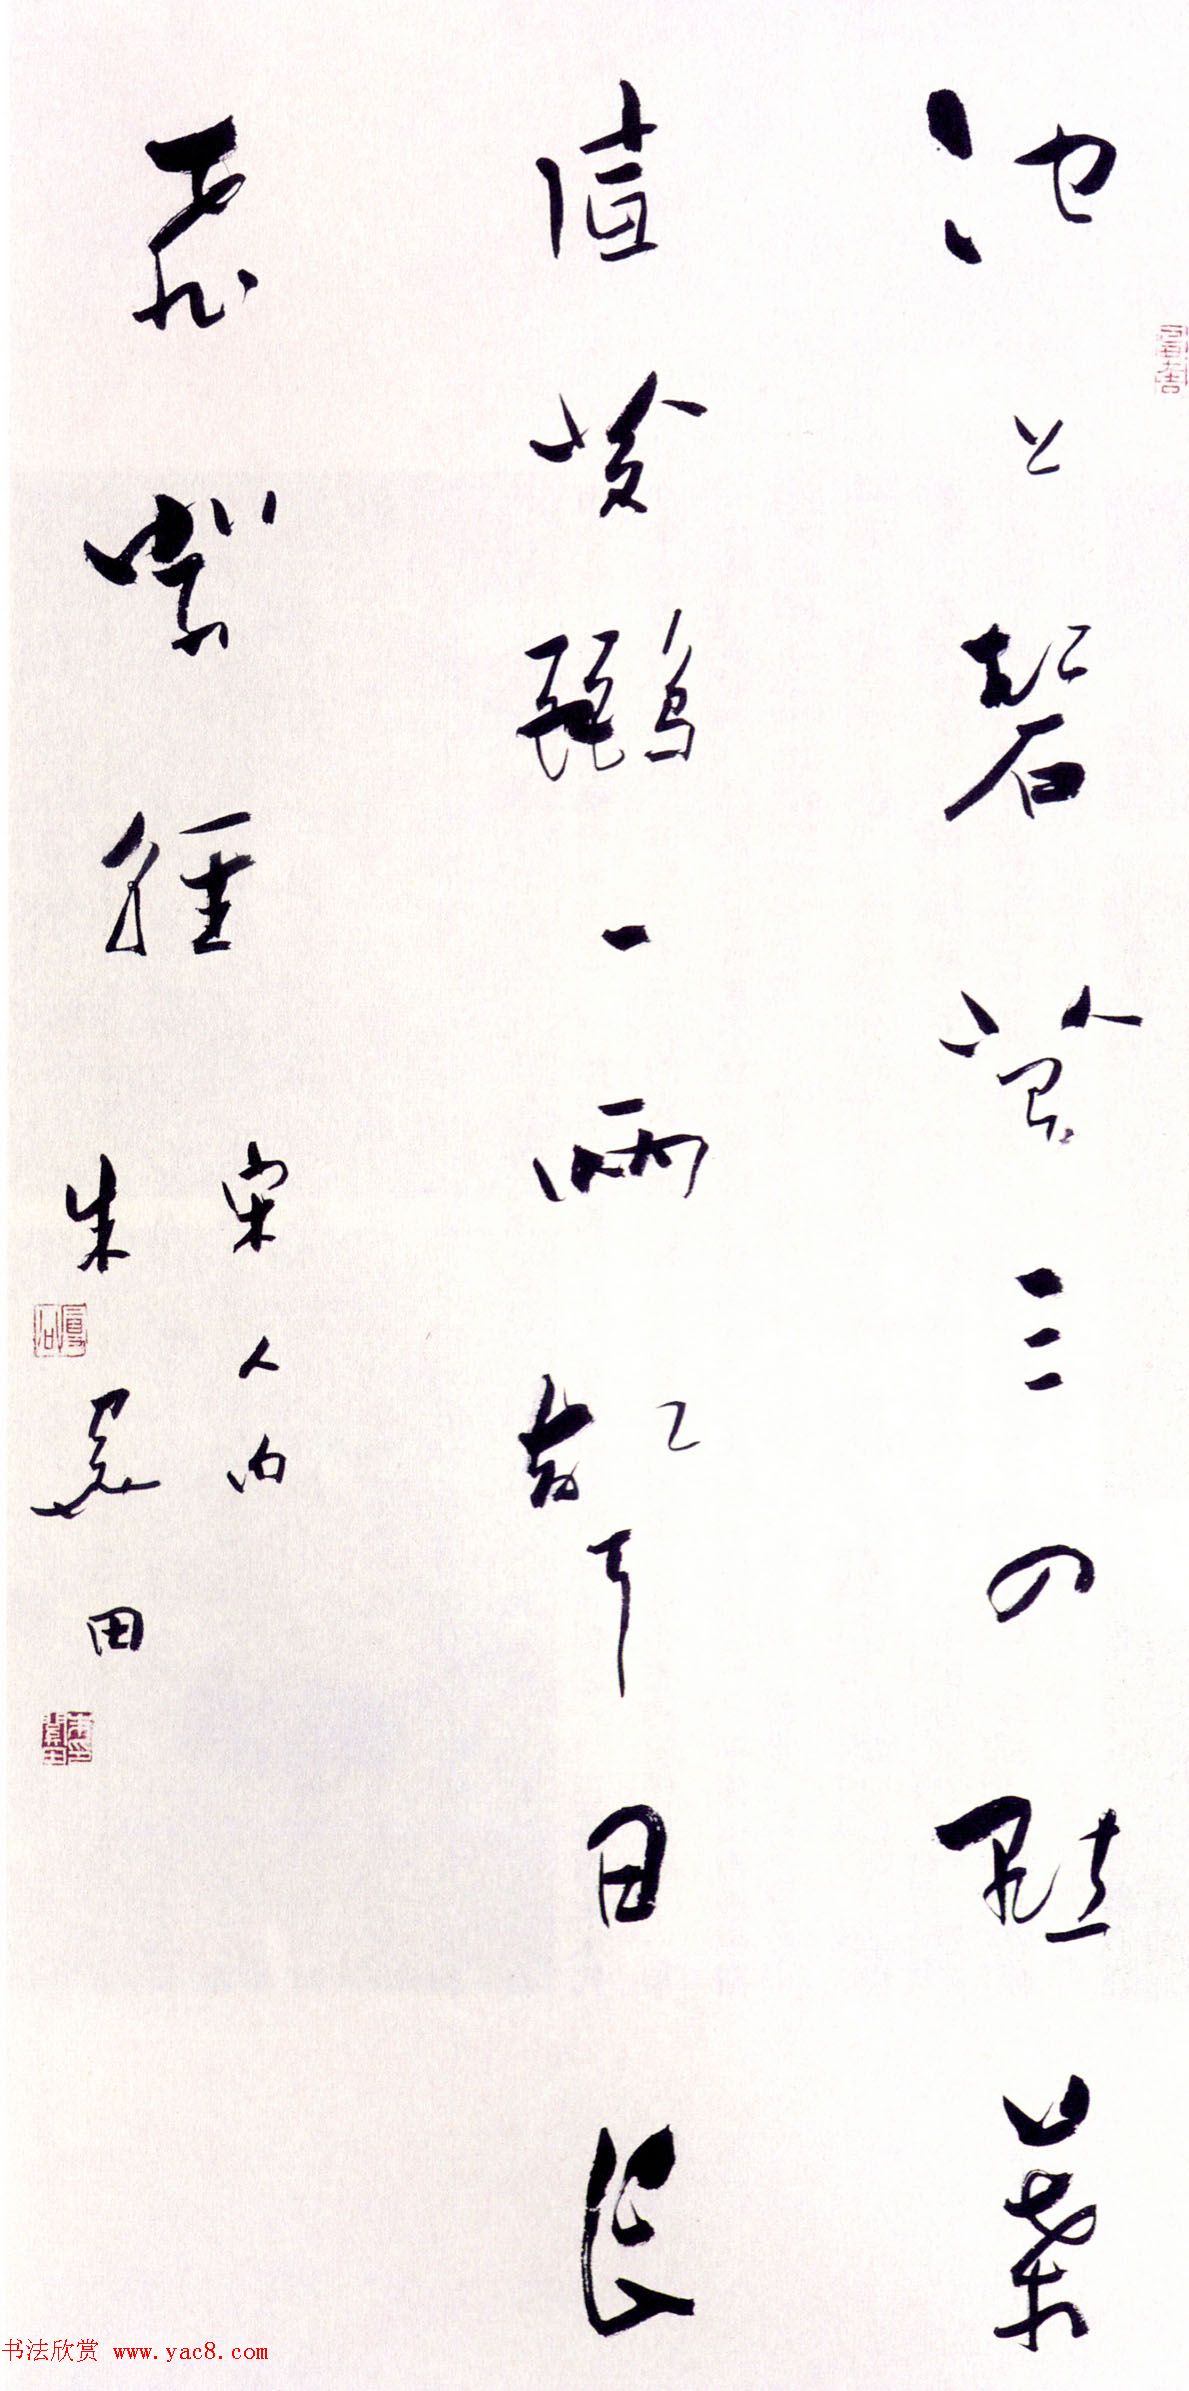 池上碧苔三四點葉
值黄鸝一兩聲日長
飛絮輕
宋人句
朱關田
书法欣赏 www.yac8.com